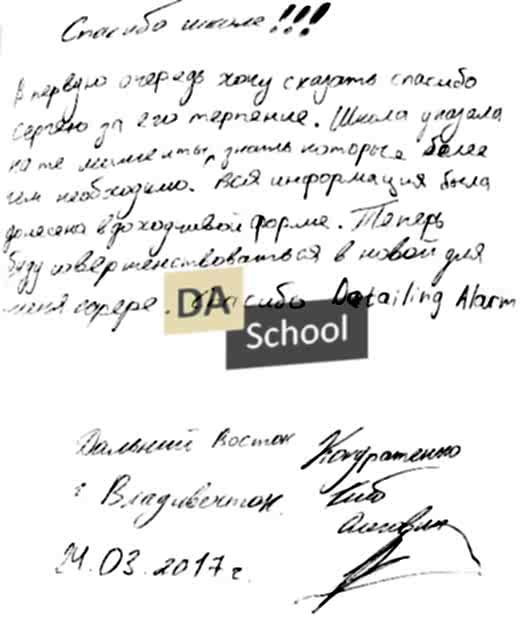 Спасибо школе!!!
В первую очередь хочу сказать спасибо
Сергею за его терпение. Школа указала
на те моменты, знать которые более
чем необходимо. Вся информация была
донесена в доходчивой форме. Теперь
буду совершенствоваться в новой для
меня сфере. Спасибо Detailing Alarm
DA
School
Дальний Восток Кондратенко
г Владивосток.
24.03.2017г.